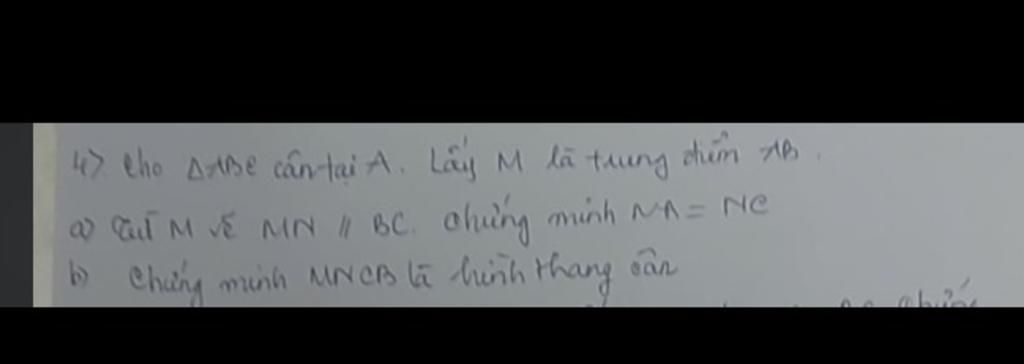 4) Cho ΔABC cân tại A. Lấy M là trung điểm AB.
a) Từ M vẽ MN // BC. Chứng minh NA = NC
b) Chứng minh MNCB là hình thang cân